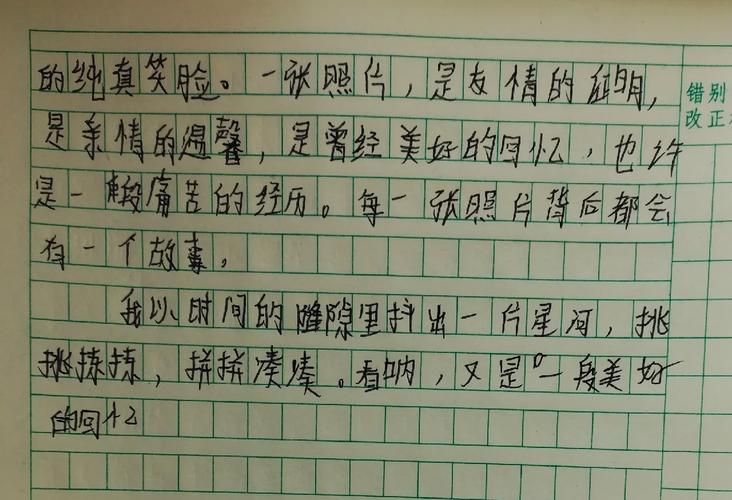 的纯真笑脸。一张照片，是友情的证明，
是亲情的温馨，是曾经美好的回忆，也许
是一段痛苦的经历。每一张照片背后都会
有一个故事。
我从时间的缝隙里抖出一片星河，挑
挑拣拣，拼拼凑凑。看呐，又是一段美好
的回忆
错别
改正